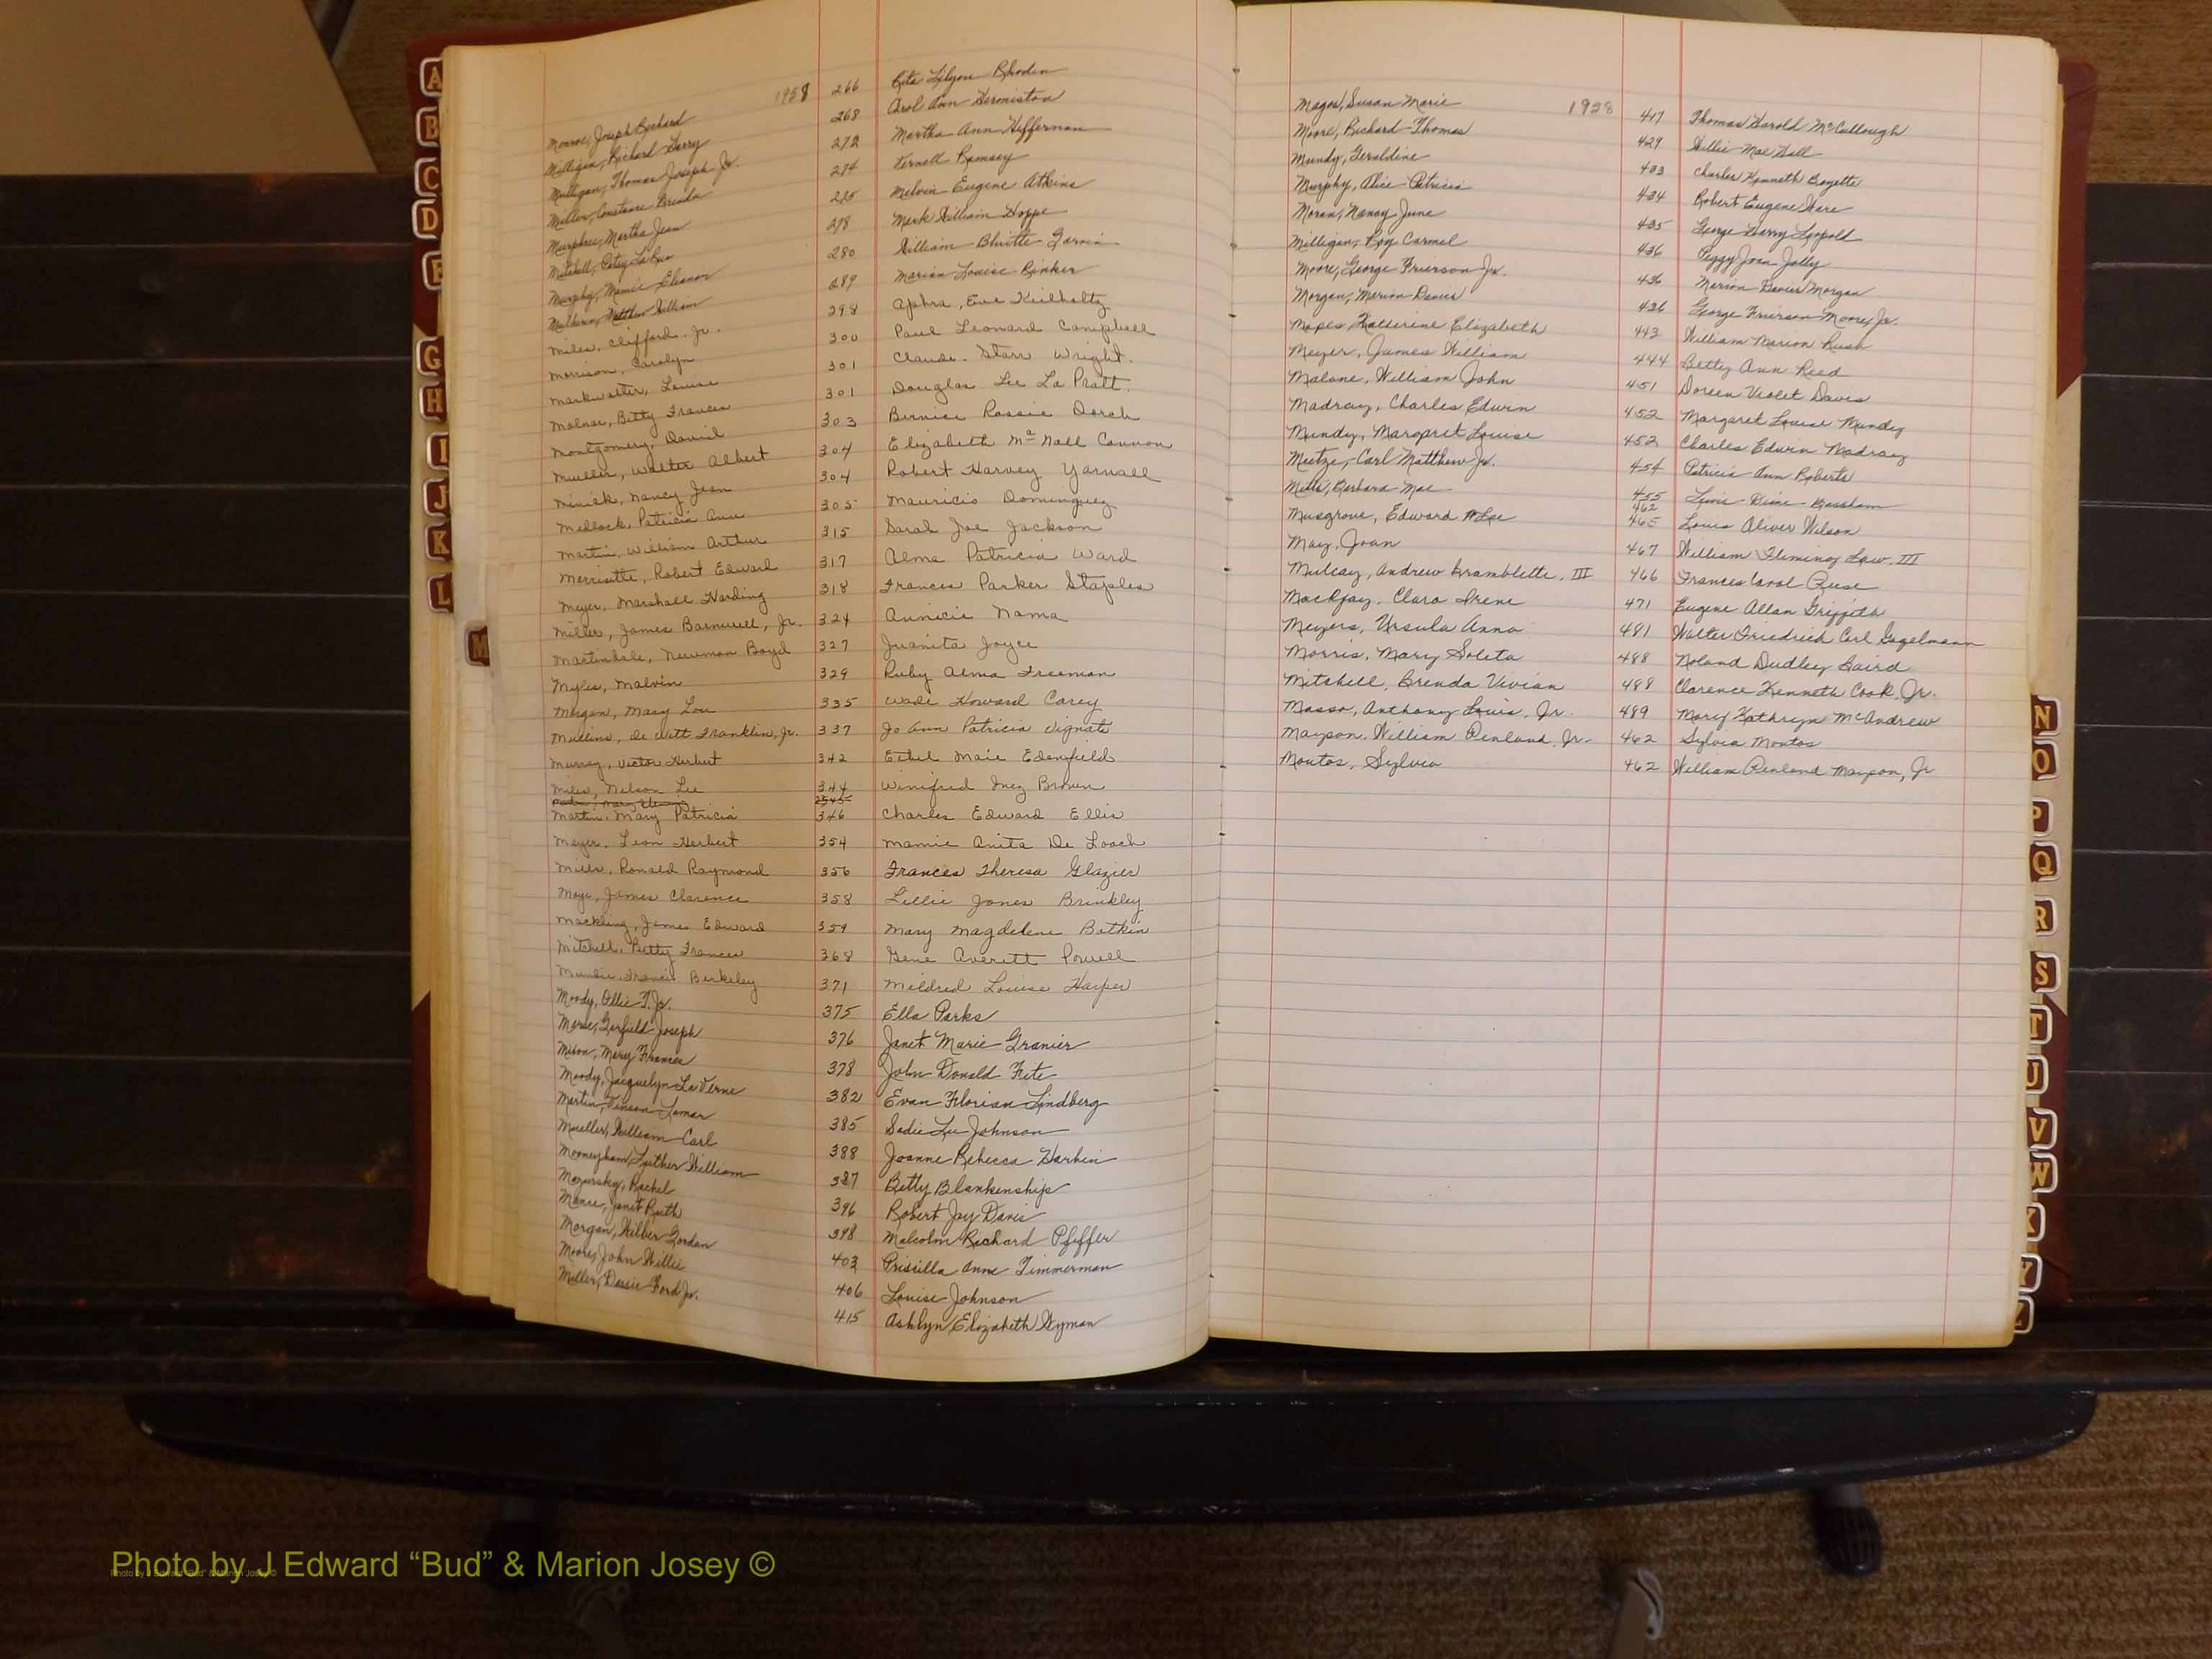 1958
Monroe, Joseph Richard 266 Rita Lilyon Rhoden
Milligan, Richard Harry 268 Carol Ann Hermiston
Mulligan, Thomas Joseph Jr. 272 Martha Ann Heffernan
Miller, Constance Brenda 274 Ternell Ramsey
Murphree, Martha Jean 275 Melvin Eugene Atkins
Mitchell, Patsy LaRue 278 Mark William Hoppe
Murphy, Mamie Eleanor 280 William Bluitte Garvin
Mulherin, Matthew William 289 Marian Louise Rinker
Miles, Clifford, Jr. 298 Aphra, Eva Keilholtz
Morrison, Carolyn 300 Paul Leonard Campbell
Markwalter, Louise 301 Claude Starr Wright.
Molnar, Betty Frances 301 Douglas Lee La Pratt.
Montgomery, David 303 Bernice Rossie Dorch
Mueller, Walter Albert 304 Elizabeth McNall Cannon
Minick, Nancy Jean 304 Robert Harvey Yarnall
Matlock, Patricia Ann 305 Mauricio Dominguez
Martin, William Arthur 315 Sarah Joe Jackson
Morrisette, Robert Edward 317 Alma Patricia Ward
Meyer, Marshall Harding 318 Frances Parker Staples
Miller, James Barnwell, Jr. 324 Annicie Nama
Martindale, Newman Boyd 327 Juanita Joyce
Myles, Malvin 329 Ruby Alma Freeman
Morgan, Mary Lou 335 Wade Howard Carey
Mullins, De Witt Franklin, Jr. 337 Jo Ann Patricia Vignati
Murray, Victor Herbert 342 Ethel Maie Edenfield
Miles, Nelson Lee 344 Winifred Inez Brown
Martin, Mary Patricia 346 Charles Edward Ellis
Meyer, Leon Herbert 354 Mamie Anita De Loach
Mills, Ronald Raymond 356 Frances Theresa Glazier
Moye, James Clarence 358 Lillie Jones Brinkley
Mackling, James Edward 359 Mary Magdelene Botkin
Mitchell, Betty Frances 368 Gene Averett Powell
Mundie, Francis Berkeley 371 Mildred Louise Harper
Moody, Ollie T. Jr. 375 Ella Parks
Morse, Garfield Joseph 376 Janet Marie Granier
Mixon, Mary Frances 378 John Donald Fite
Moody, Jacquelyn LaVerne 382 Evan Florian Lindberg
Martin, Vinson Lamar 385 Sadie Lu Johnson
Mueller, William Carl 388 Joanne Rebecca Harbin
Mooneyham, Luther William 387 Betty Blankenship
Mazursky, Rachel 396 Robert Jay Davis
Mance, Janet Ruth 398 Malcolm Richard Pfeffer
Morgan, Wilber Gordon 403 Priscilla Anne Timmerman
Moore, John Willie 406 Louise Johnson
Miller, Dassie Ford Jr. 415 Ashlyn Elizabeth Wyman
1958
Magos, Susan Marie 417 Thomas Harold McCullough
Moore, Richard Thomas 429 Willie Mae Hall
Mundy, Geraldine 433 Charles Kenneth Boyette
Murphy, Alice Patricia 434 Robert Eugene Ware
Moran, Nancy June 435 George Harry Leopold
Milligan, Roy Carmel 436 Peggy Joan Jolly
Moore, George Frierson Jr. 436 Marion Davies Morgan
Morgan, Marion Davies 436 George Frierson Moore, Jr.
Mapes Katherine Elizabeth 443 William Marion Rush
Meyer, James William 444 Betty Ann Reed
Malone, William John 451 Doreen Violet Davis
Madray, Charles Edwin 452 Margaret Louise Mundy
Mundy, Margaret Louise 452 Charles Edwin Madray
Meetze, Carl Matthew Jr. 454 Patricia Ann Roberts
Mills, Barbara Mae 455 Lewis Dixie Bassham
462
Musgrove, Edward McLee 465 Louis Oliver Wilson
May, Joan 467 William Fleming Law, III
Mulcay, Andrew Bramblette, III 466 Frances Carol Reese
MacKfay, Clara Irene 471 Eugene Allan Griffith
Meyers, Ursula Anna 481 Walter Friedrick Carl Gagelmann
Morris, Mary Soleta 488 Noland Dudley Baird
Mitchell, Brenda Vivian 488 Clarence Kenneth Cook, Jr.
Masso, Anthony Louis, Jr. 489 Mary Kathryn McAndrew
Mayson, William Penland, Jr. 462 Sylvia Moutos
Moutos, Sylvia 462 William Penland Mayson, Jr
A
B
C
D
E
G
H
I
J
K
L
M
N
O
P
Q
R
S
T
U
V
W
X
Y
Z
Photo by J Edward “Bud” & Marion Josey ©
Photo by J Edward “Bud” & Marion Josey ©